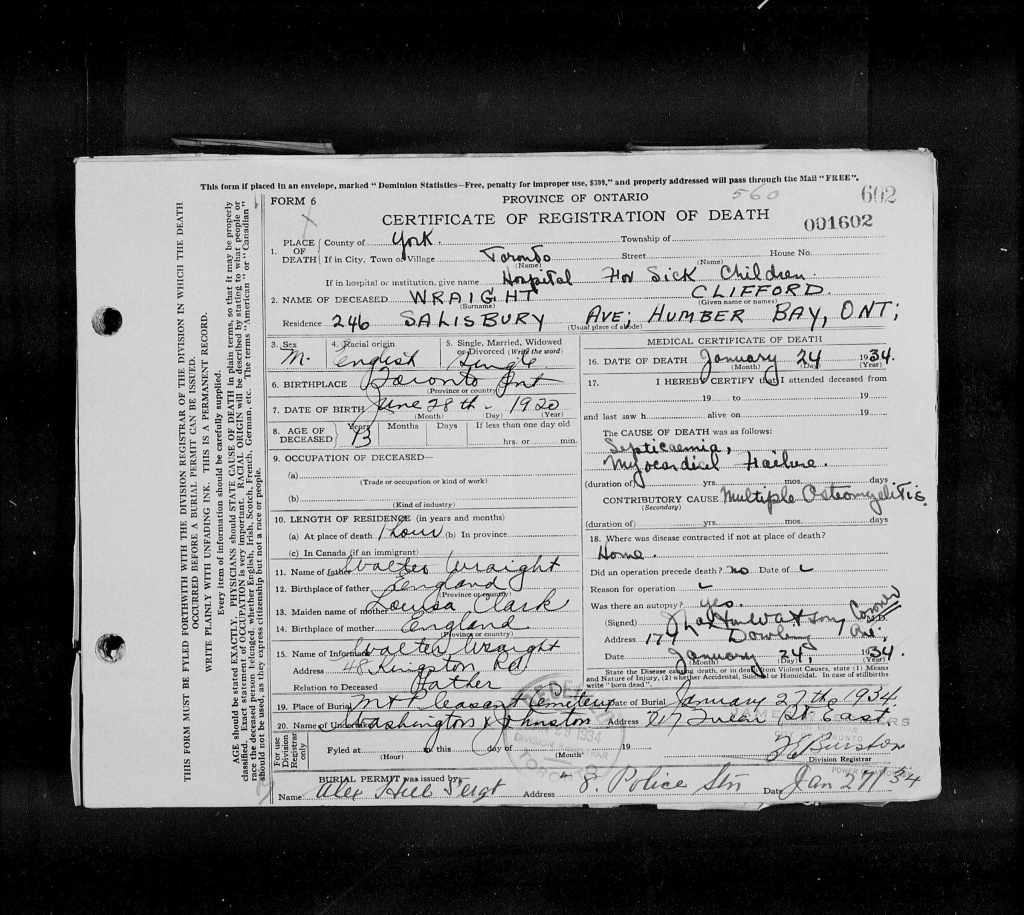 This form if placed in an envelope, marked "Dominion Statistics—Free, penalty for improper use, $300," and properly addressed will pass through the Mail "FREE".
THIS FORM MUST BE FYLED FORTHWITH WITH THE DIVISION REGISTRAR OF THE DIVISION IN WHICH THE DEATH
OCCURRED BEFORE A BURIAL PERMIT CAN BE ISSUED.
WRITE PLAINLY WITH UNFADING INK. THIS IS A PERMANENT RECORD.
Every item of information should be carefully supplied.
AGE should be stated EXACTLY. PHYSICIANS should STATE CAUSE OF DEATH in plain terms, so that it may be properly
classified. Exact statement of OCCUPATION is very important. RACIAL ORIGIN will be described by stating to what people or
race the deceased person belonged, whether English, Irish, Scotch, French, German, etc. The terms "American" or "Canadian"
should not be used, as they express citizenship but not a race or people.
FORM 6 PROVINCE OF ONTARIO 560 602
CERTIFICATE OF REGISTRATION OF DEATH 001602
1. PLACE OF DEATH County of York. Township of
If in City, Town or Village Toronto (Name) Street (Name) House No.
If in hospital or institution, give name Hospital For Sick Children.
2. NAME OF DECEASED WRAIGHT (Surname) CLIFFORD. (Given name or names)
Residence 246 SALISBURY AVE; HUMBER BAY, ONT; (Usual place of abode)
3. Sex M. 4. Racial origin English 5. Single, Married, Widowed or Divorced (Write the word) Single
6. BIRTHPLACE Toronto Ont (Province or country)
7. DATE OF BIRTH June 28th 1920 (Month) (Day) (Year)
8. AGE OF DECEASED Years 13 Months Days If less than one day old hrs. or min.
9. OCCUPATION OF DECEASED—
(a) (Trade or occupation or kind of work)
(b) (Kind of industry)
10. LENGTH OF RESIDENCE (in years and months)
(a) At place of death 1 hour (b) In province
(c) In Canada (if an immigrant)
11. Name of father Walter Wraight
12. Birthplace of father England (Province or country)
13. Maiden name of mother Louisa Clark
14. Birthplace of mother England (Province or country)
15. Name of Informant Walter Wraight
Address 48 Kingston Rd
Relation to Deceased Father
MEDICAL CERTIFICATE OF DEATH
16. DATE OF DEATH January 24 1934. (Month) (Day) (Year)
17. I HEREBY CERTIFY that I attended deceased from
19 to 19
and last saw h alive on 19
The CAUSE OF DEATH was as follows:
Septicaemia,
Myocardial Failure.
(duration of) yrs. mos. days
CONTRIBUTORY CAUSE Multiple Osteomyelitis
(Secondary)
(duration of) yrs. mos. days
18. Where was disease contracted if not at place of death?
Home.
Did an operation precede death? no Date of
Reason for operation
Was there an autopsy? yes.
(Signed) Coroner M.D.
Address 174 Dowling Ave.
Date January 24, 1934. (Month) (Day) (Year)
State the Disease causing death, or in death from Violent Causes, state (1) Means
and Nature of Injury, (2) whether Accidental, Suicidal or Homicidal. In case of stillbirths
write "born dead".
19. Place of Burial Mt Pleasant Cemetery Date of Burial January 27th 1934.
20. Name of Undertaker Washington & Johnston Address 717 Queen St. East.
For use Division Registrar only Fyled at (Hour) this day of (Month) 19 Division Registrar
BURIAL PERMIT was issued by
Name Alex Hill Sergt Address 8. Police Stn Date Jan 27/34